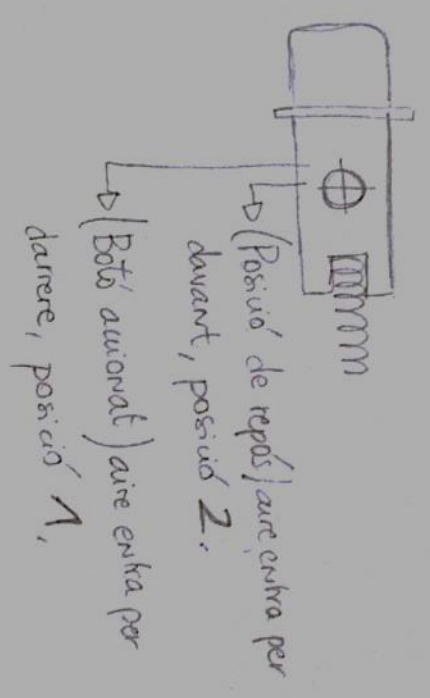 (Posició de repós) aire entra per
davant, posició 2.
(Botó accionat) aire entra per
darrere, posició 1.